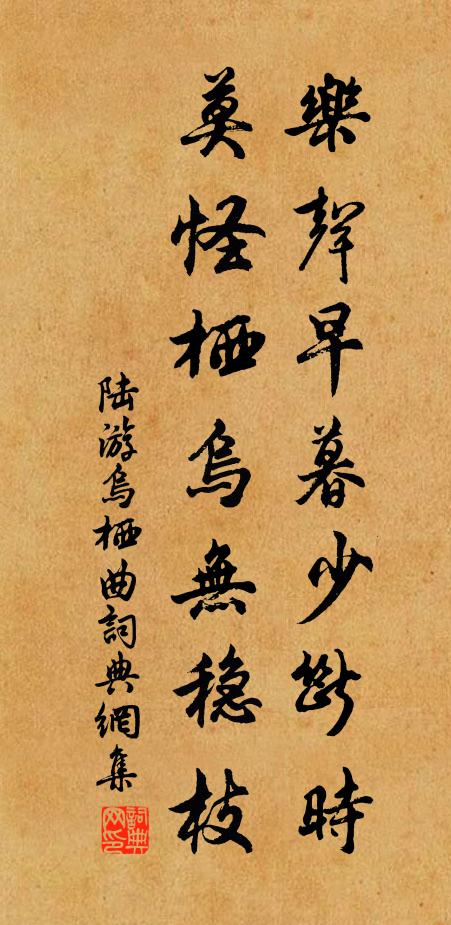 樂聲早暮少斷時
莫怪栖烏無穩枝
陆游烏栖曲詞典網集
詞典網印